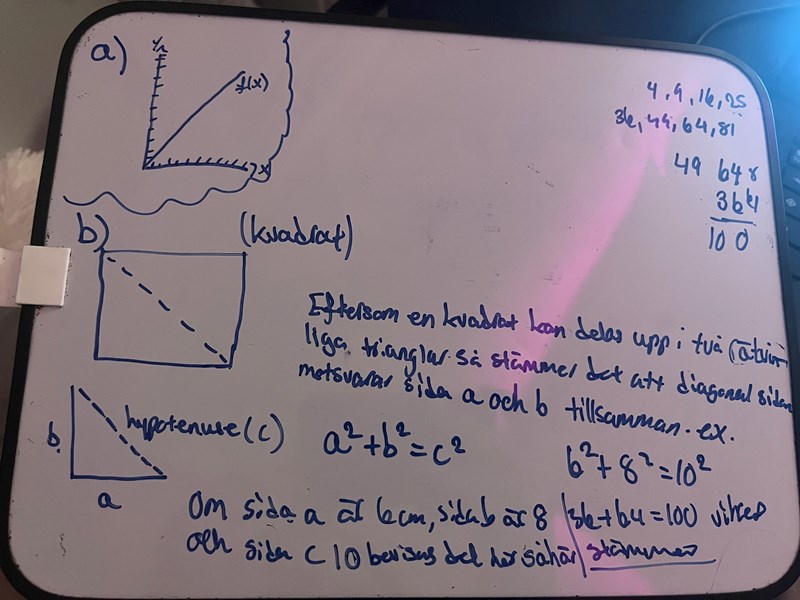 a)
f(x)
x
4, 9, 16, 25
36, 49, 64, 81
49 64
36
100
b) (kvadrat)
Eftersom en kvadrat kan delas upp i två
liga trianglar så stämmer det att diagonal sidan
motsvarar sida a och b tillsamman. ex.
b hypotenuse (c)
a
a² + b² = c²
6² + 8² = 10²
Om sida a är 6 cm, sida b är 8
och sidan c 10 bevisas det här såhär
36 + 64 = 100 vilket
stämmer